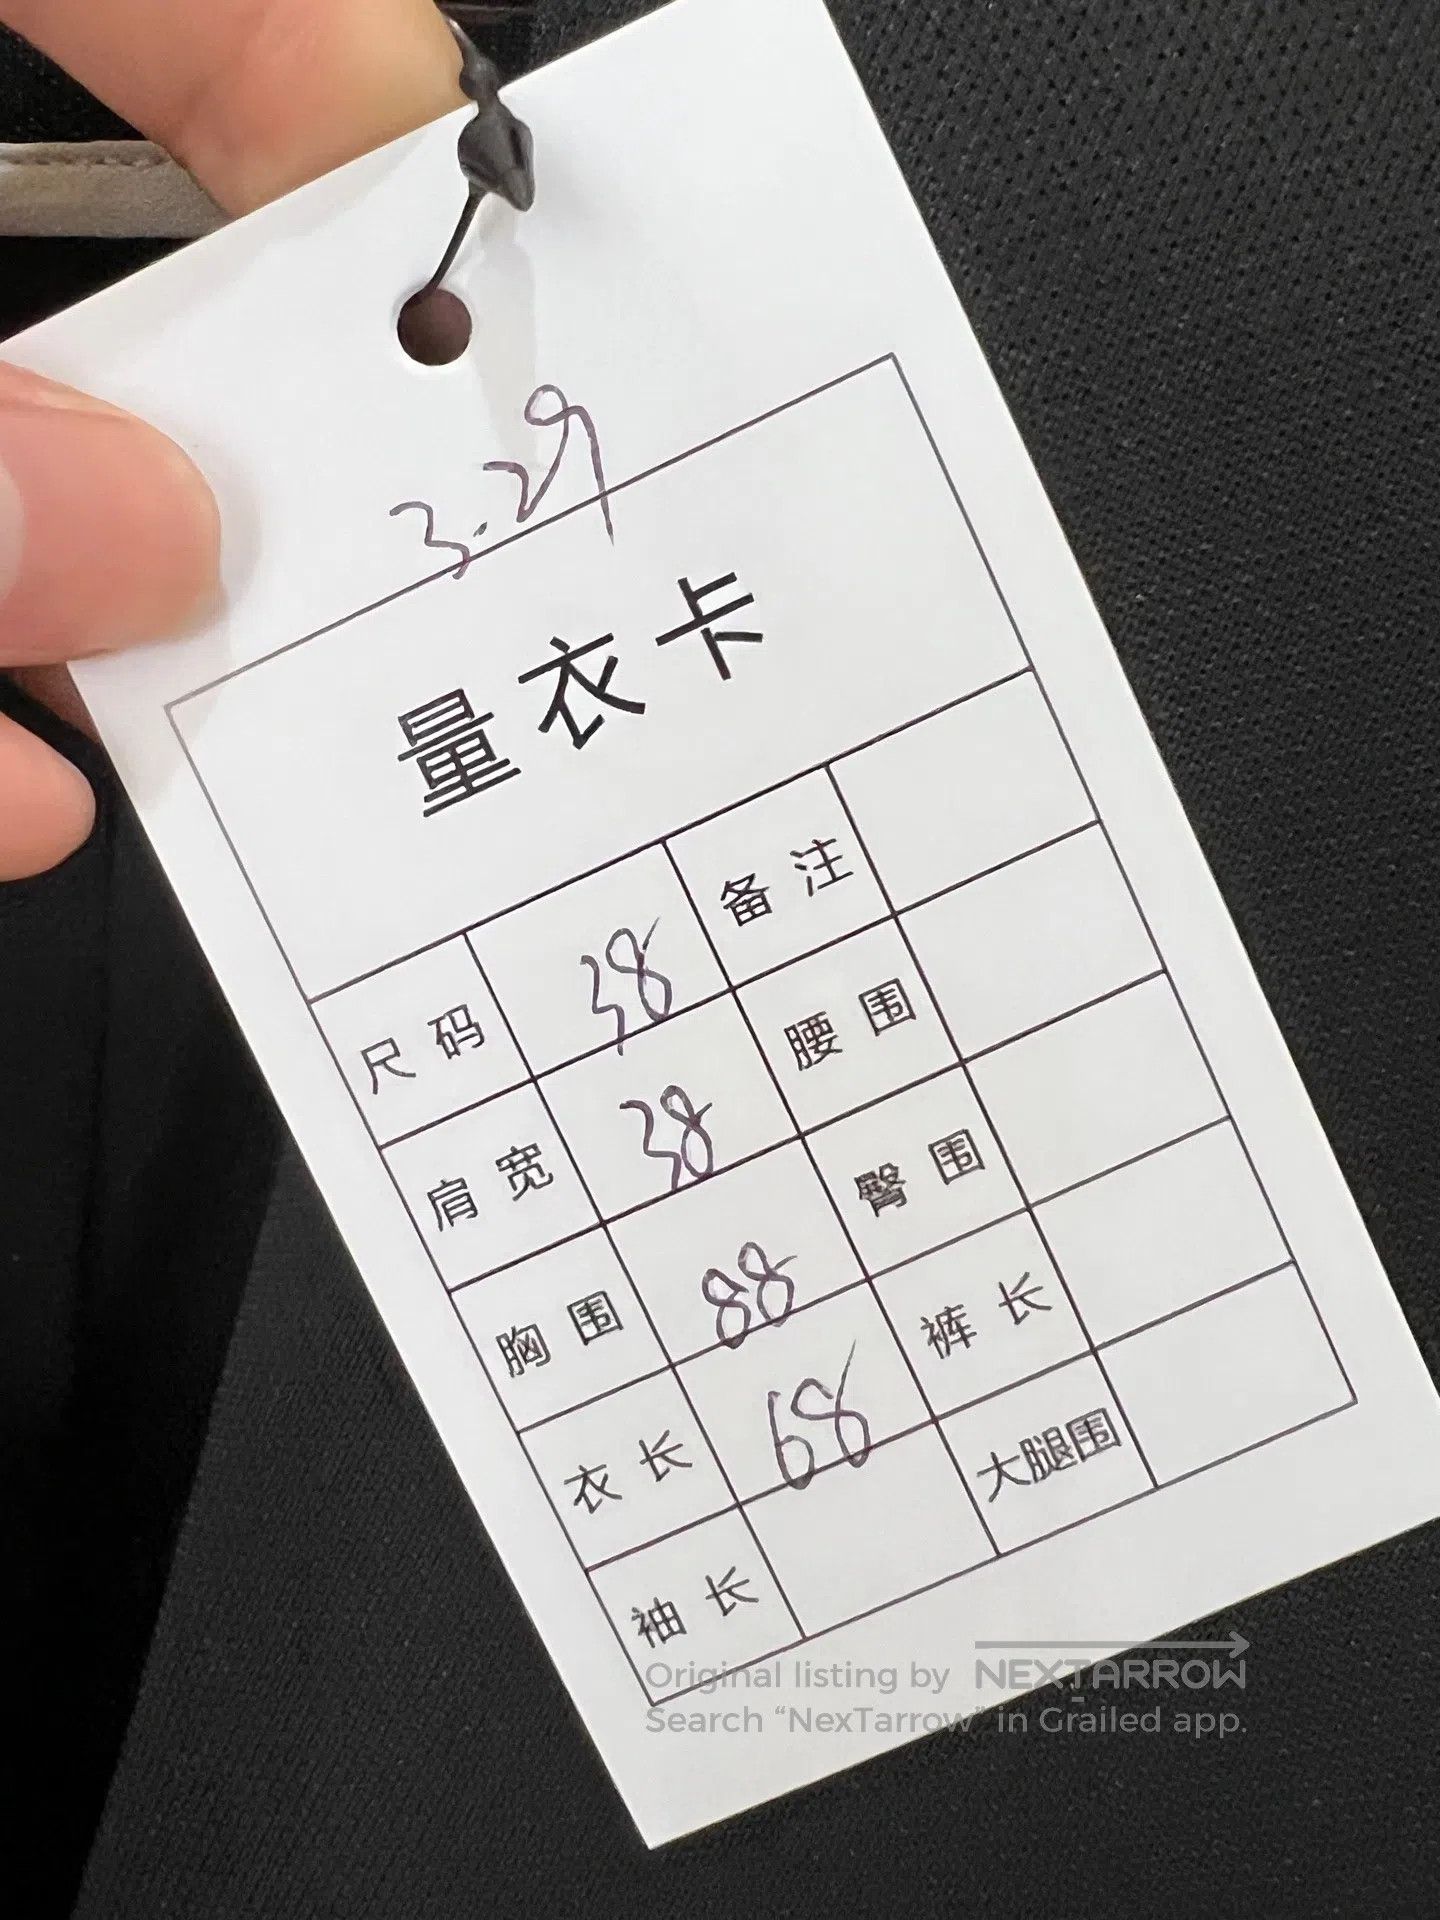 3.29
量衣卡
尺码 38 备注
肩宽 38 腰围
胸围 88 臀围
衣长 68 裤长
袖长 大腿围
Original listing by NEXTARROW
Search “NexTarrow” in Grailed app.